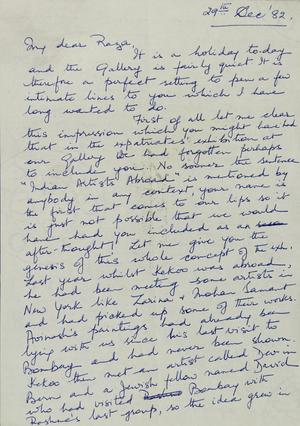 29th Dec '82.
My dear Raza,
It is a holiday today
and the Gallery is fairly quiet. It is
therefore a perfect setting to pen a few
intimate lines to you which I have
long wanted to do.
First of all let me clear
this impression which you might have had
that in the expatriates' exhibition at
our Gallery we had forgotten perhaps
to include you. No sooner the sentence
"Indian Artists Abroad" is mentioned by
anybody in any context, your name is
the first that comes to our lips so it
is just not possible that we would
have had you included as an
after-thought! Let me give you the
genesis of this whole concept of the exh.
Last year whilst Kekoo was abroad,
he had been meeting some artists in
New York like Zarina & Mohan Samant
and had picked up some of their works.
Avinash's paintings had already been
lying with us since his last visit to
Bombay and had never been shown.
Kekoo then met an artist called Dev in
Bern and a Jewish fellow named David
who had visited Bombay with
Rashna's last group, so the idea grew in